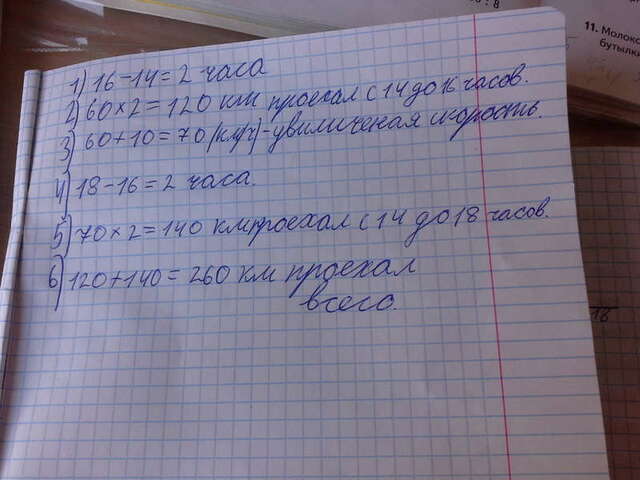 : 8
11. Молоко
бутылки
1) 16-14=2 часа
2) 60×2=120 км проехал с 14 до 16 часов.
3) 60+10=70 (км/ч)-увиличеная скорость.
4) 18-16=2 часа.
5) 70×2=140 км проехал с 14 до 18 часов.
6) 120+140=260 км проехал
всего.
16